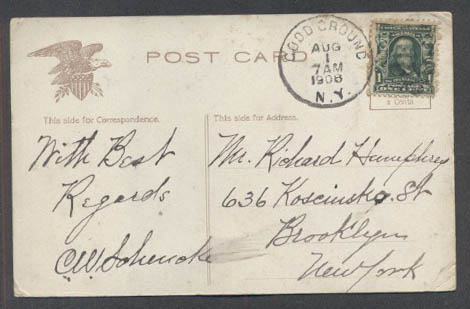 POST CARD
GOOD GROUND
AUG
1
7AM
1908
N.Y.
1
1
This side for Correspondence.
This side for Address.
With Best
Regards
C.W. Schencke
Mr. Richard Humphrey
636 Kosciusko. St
Brooklyn
New York